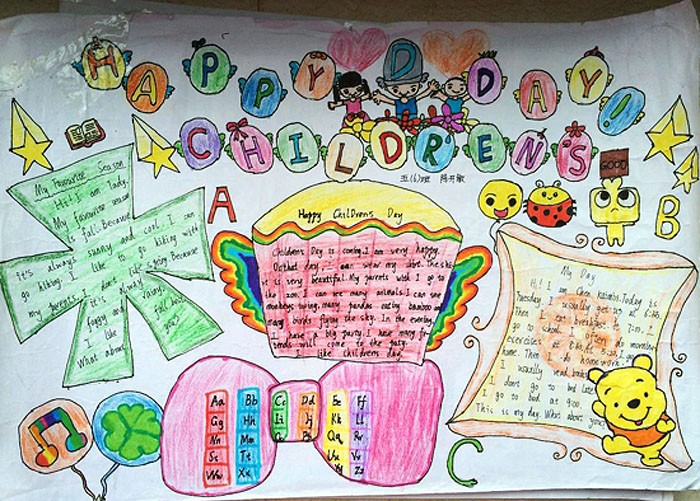 HAPPY D DAY!
CHILDREN'S
五(6)班
GOOD
A
B
C
My Favourite Season
Hi! I am lady.
My favourite season
is fall. Because
it's always sunny and cool. I can
go hiking. I like to go hiking with
my parents. I don't like spring. Because
it is always rainy,
foggy and
like fall best
What about you?
Happy Childrens Day
Childrens Day is coming. I am very happy.
On that day, wear my skirt. The skirt
it is very beautiful. My parents with I go to
the zoo. I can see many animals. I can see
monkeys swing, many pandas eating bamboo and
many birds flying the sky. In the evening,
I have a big party. I have many fri
ends will come to the party.
I like childrens day.
My Day
Hi! I am Chen Today is
Tuesday. I usually get up at 6:45.
Then I eat breakfast 7:20. I
go to school. I often do morning
exercises at 5:20, I go
home. Then I do homework.
I usually read books
I don't go to bed late
I go to bed at 9:00
This is my day. What about you?
Aa Bb Cc Dd Ee Ff
Gg Hh Ii Jj Kk Ll
Mm Nn Qq Rr
Ss Tt
Ww Xx